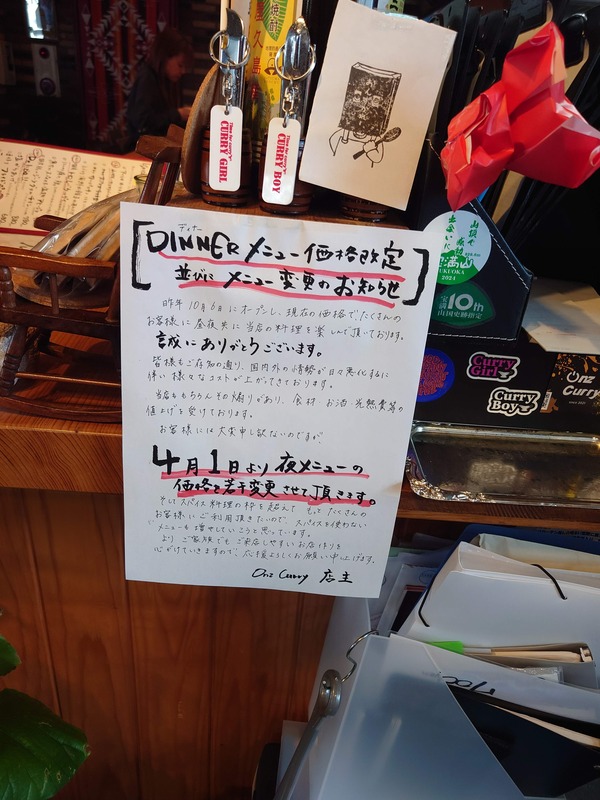 CURRY GIRL
CURRY BOY
屋久島
ディナー
[DINNER メニュー価格改定
並びに メニュー変更のお知らせ]
昨年10月6日にオープンし、現在の価格でたくさんの
お客様に昼夜共に当店の料理を楽しんで頂いております。
誠にありがとうございます。
皆様もご存知の通り、国内外の情勢が日々悪化するに
伴い様々なコストが上がてきております。
当店ももちろんその煽りがあり、食材・お酒・光熱費等の
値上げを受けております。
お客様には大変申し訳ないのですが、
4月1日より夜メニューの
価格を若干変更させて頂きます。
そしてスパイス料理の枠を超えて もっとたくさんの
お客様にご利用頂きたいので、スパイスを使わない
メニューも増やしていこうと思っています。
より ご家族でも ご来店しやすいお店作りを
心がけていきますので、応援よろしくお願い申し上げます。
Onz Curry 店主
2024
10th
Curry Girl
Curry Boy
Onz Curry